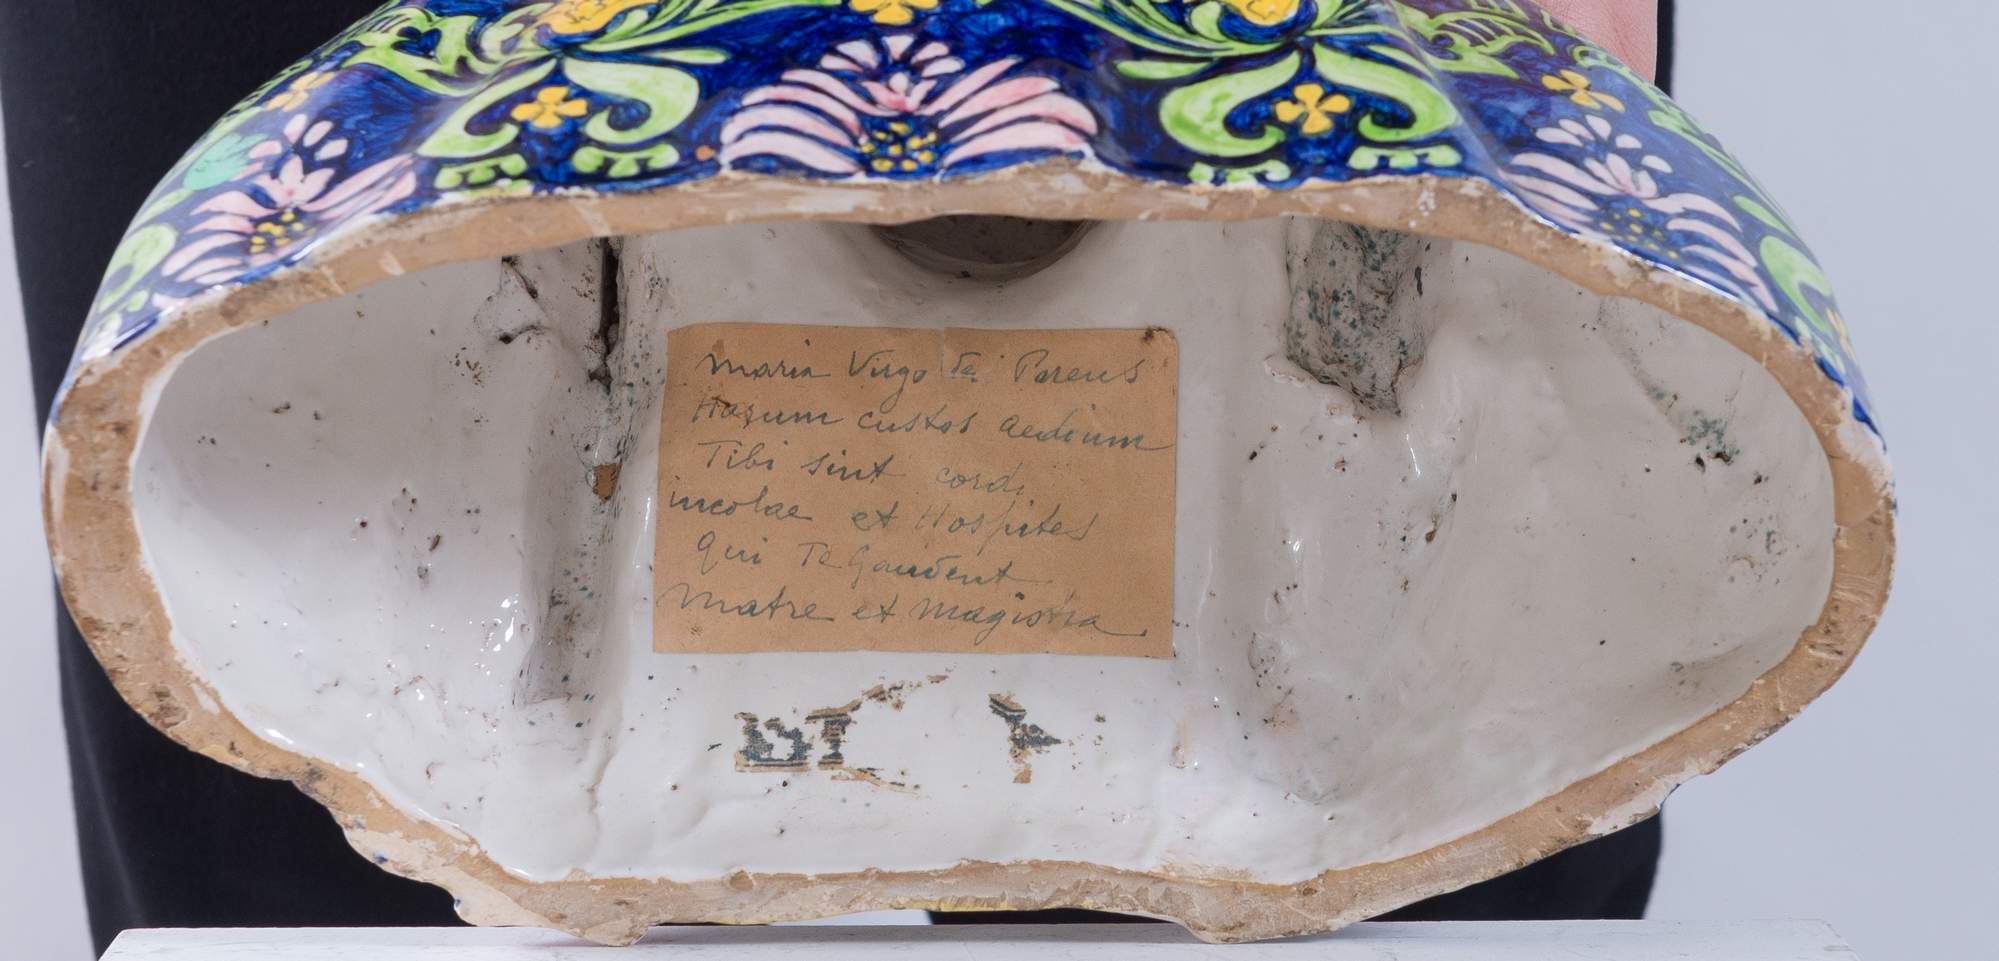 Maria Virgo Dei Parens
Harum custos aedium
Tibi sint cordi
incolae et Hospites
Qui Te gaudent
Matre et Magistra.